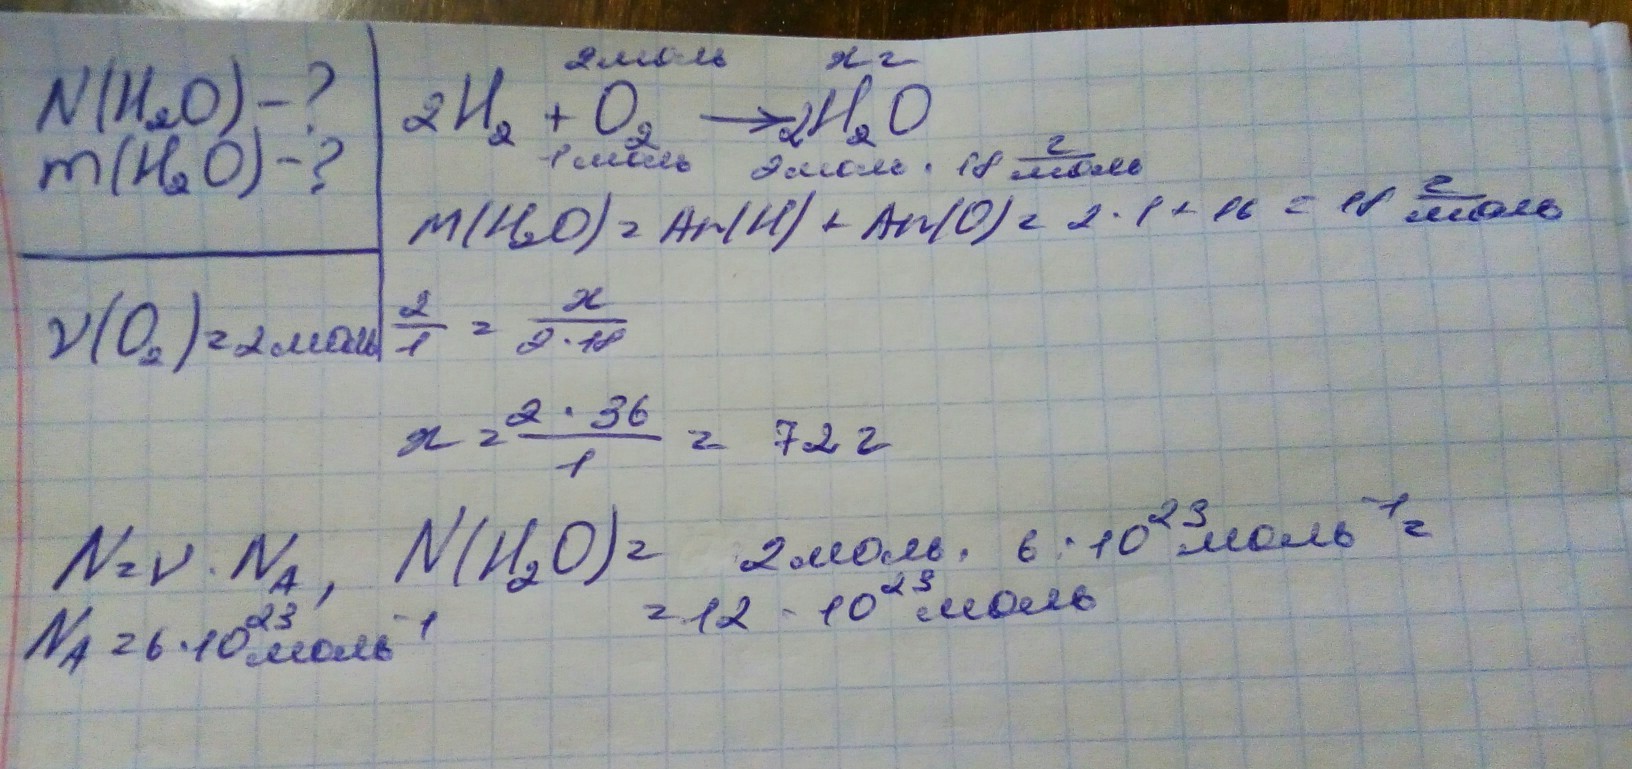 N(H₂O) - ?
m(H₂O) - ?
ν(O₂) = 2 моль
2 моль x г
2H₂ + O₂ → 2H₂O
1 моль 2 моль · 18 г/моль
M(H₂O) = Ar(H) + Ar(O) = 2 · 1 + 16 = 18 г/моль
2/1 = x/(2 · 18)
x = (2 · 36)/1 = 72 г
N = ν · N_A, N(H₂O) = 2 моль · 6 · 10²³ моль⁻¹ =
= 12 · 10²³ моль
N_A = 6 · 10²³ моль⁻¹